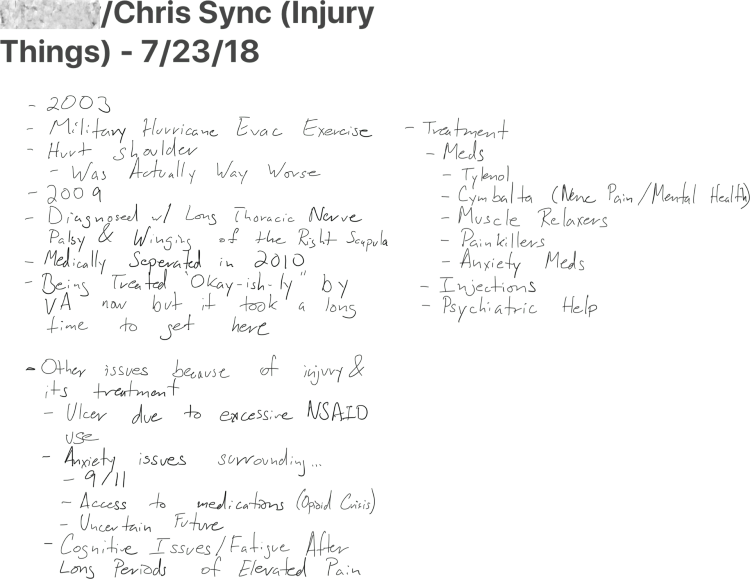 /Chris Sync (Injury
Things) - 7/23/18
- 2003
- Military Hurricane Evac Exercise
- Hurt shoulder
- Was Actually Way Worse
- 2009
- Diagnosed w/ Long Thoracic Nerve
Palsy & Winging of the Right Scapula
- Medically Seperated in 2010
- Being Treated "Okay-ish-ly" by
VA now but it took a long
time to get here
- Other issues because of injury &
its treatment
- Ulcer due to excessive NSAID
use
- Anxiety issues surrounding...
- 9/11
- Access to medications (Opioid Crisis)
- Uncertain Future
- Cognitive Issues/Fatigue After
Long Periods of Elevated Pain
- Treatment
- Meds
- Tylenol
- Cymbalta (Nerve Pain/Mental Health)
- Muscle Relaxers
- Painkillers
- Anxiety Meds
- Injections
- Psychiatric Help